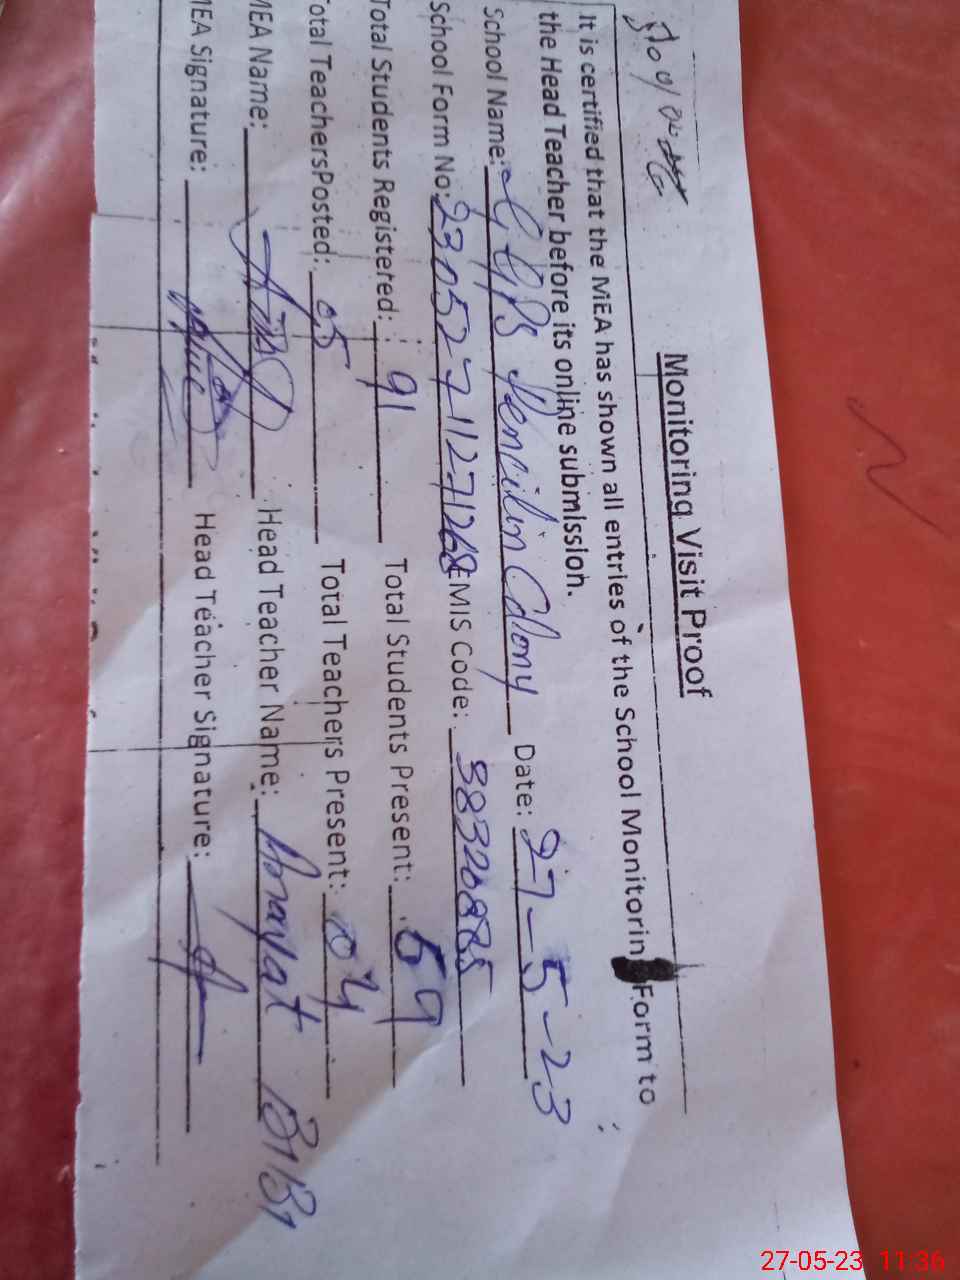 Monitoring Visit Proof
It is certified that the MEA has shown all entries of the School Monitorin Form to
the Head Teacher before its online submission.
School Name: GGPS Pencilin Colony Date: 27-5-23
School Form No: 23052711271268 EMIS Code: 38320885
Total Students Registered: 91 Total Students Present: 59
Total TeachersPosted: 05 Total Teachers Present: 04
MEA Name: Head Teacher Name: Anayat BiBi
MEA Signature: Head Teacher Signature:
27-05-23 11:36